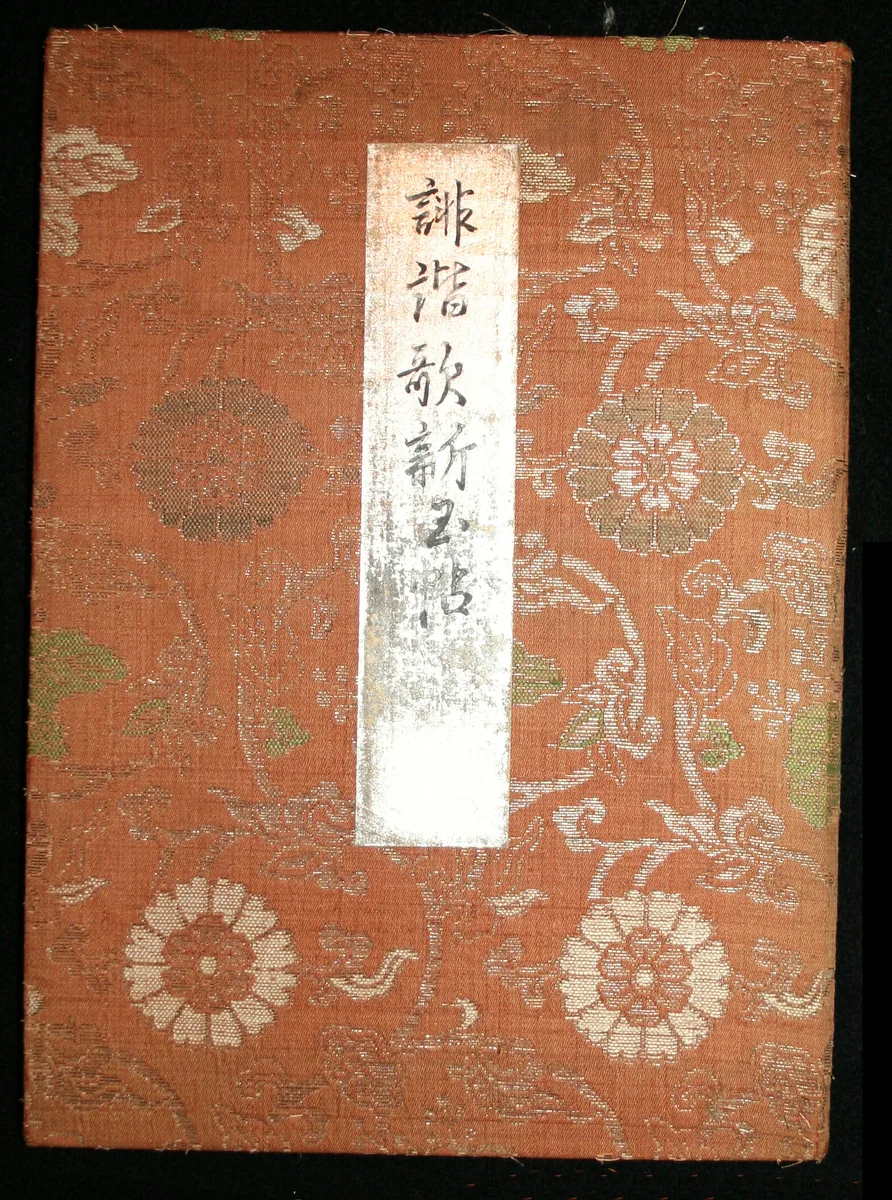 誹諧歌新玉帖